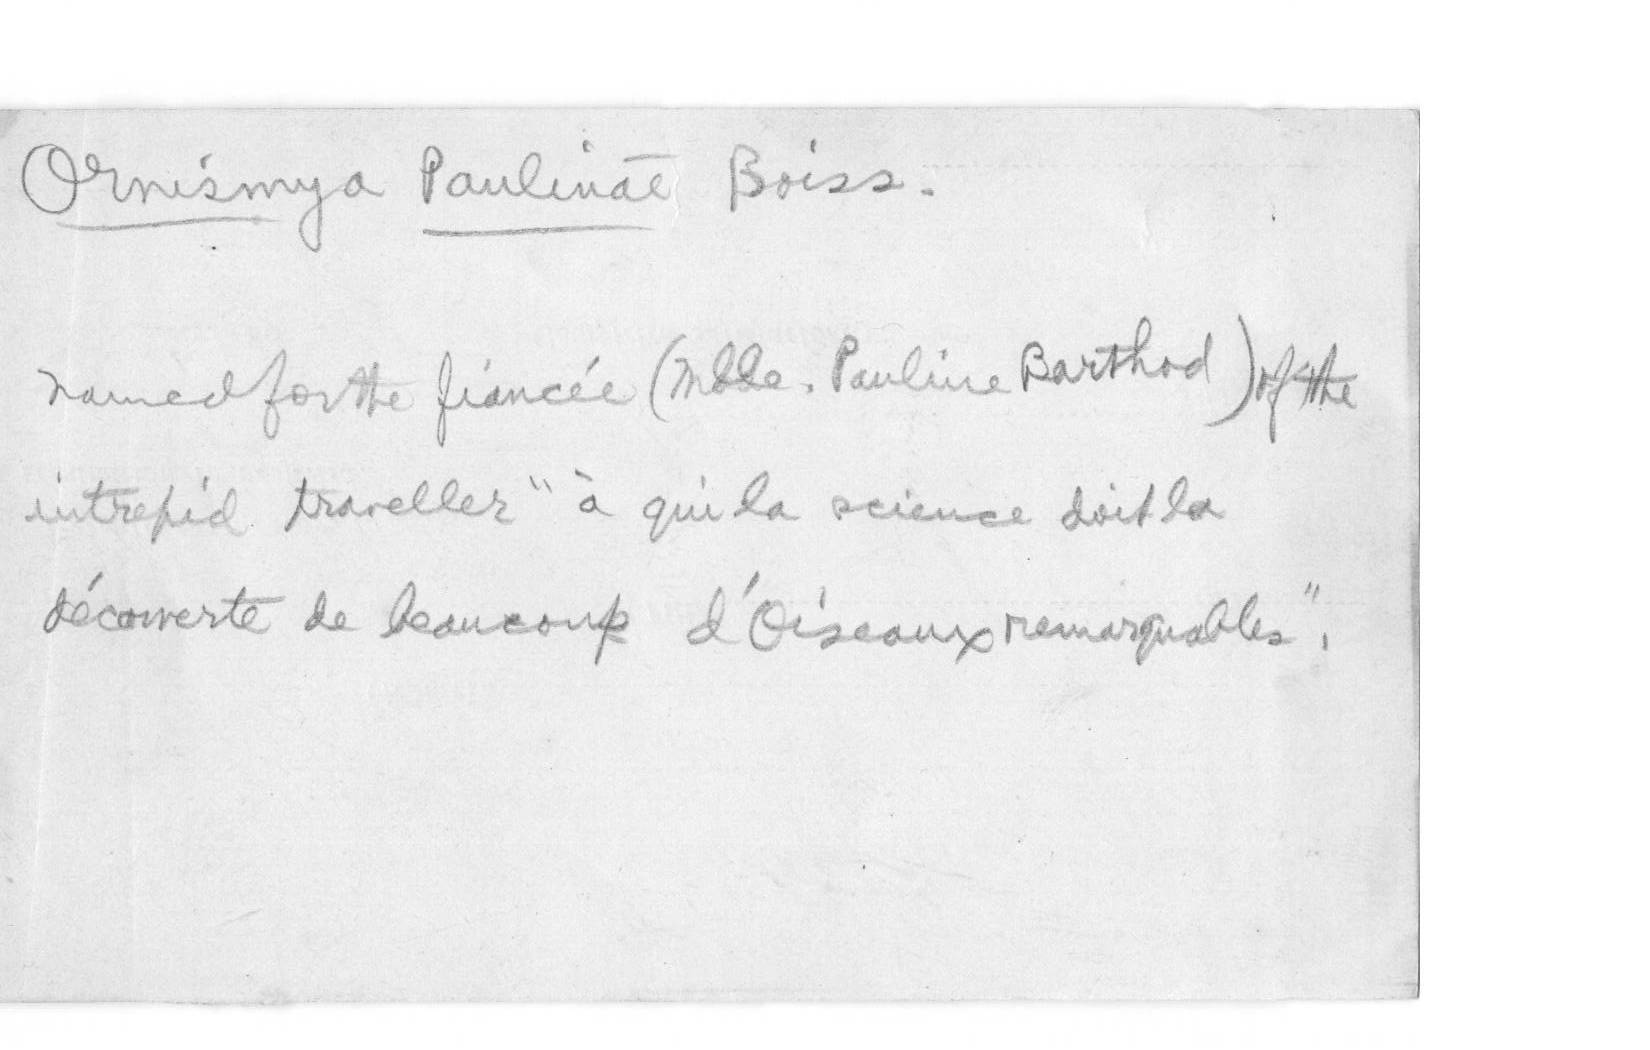 Ornismya Paulinae Boiss.
named for the fiancée (Mlle. Pauline Barthod) of the
intrepid traveller "à qui la science doit la
découverte de beaucoup d'Oiseaux remarquables".